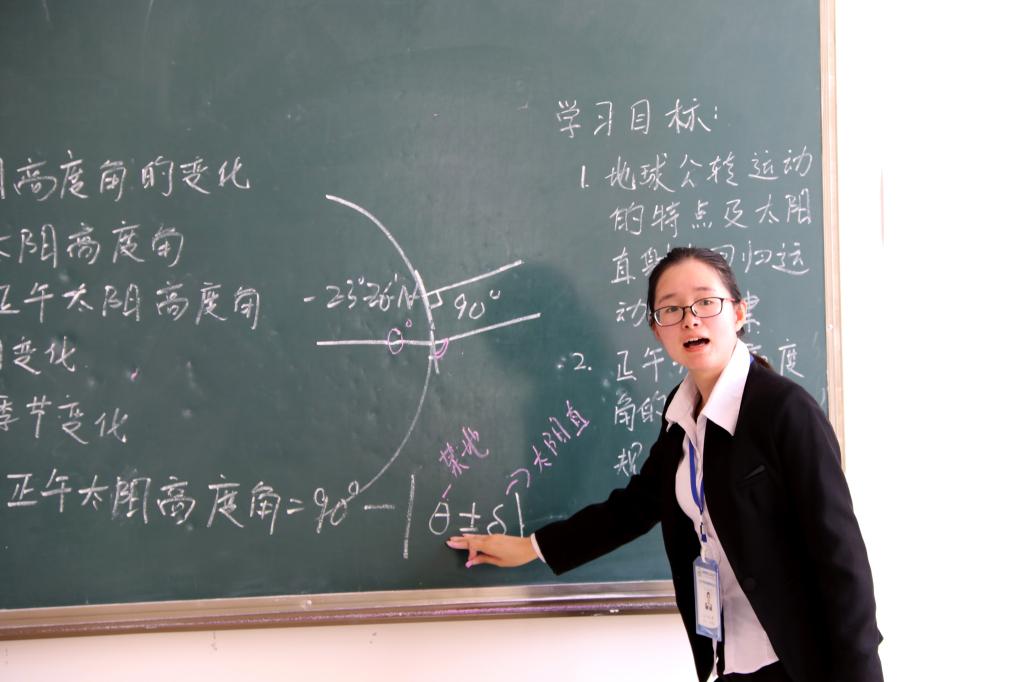 高度角的变化
太阳高度角
正午太阳高度角
变化
季节变化
正午太阳高度角=90°-|θ±δ|
某地
太阳直
-23°26′N
90°
0°
学习目标:
1. 地球公转运动
的特点及太阳
直射点回归运
动
2. 正午
度
角的
规